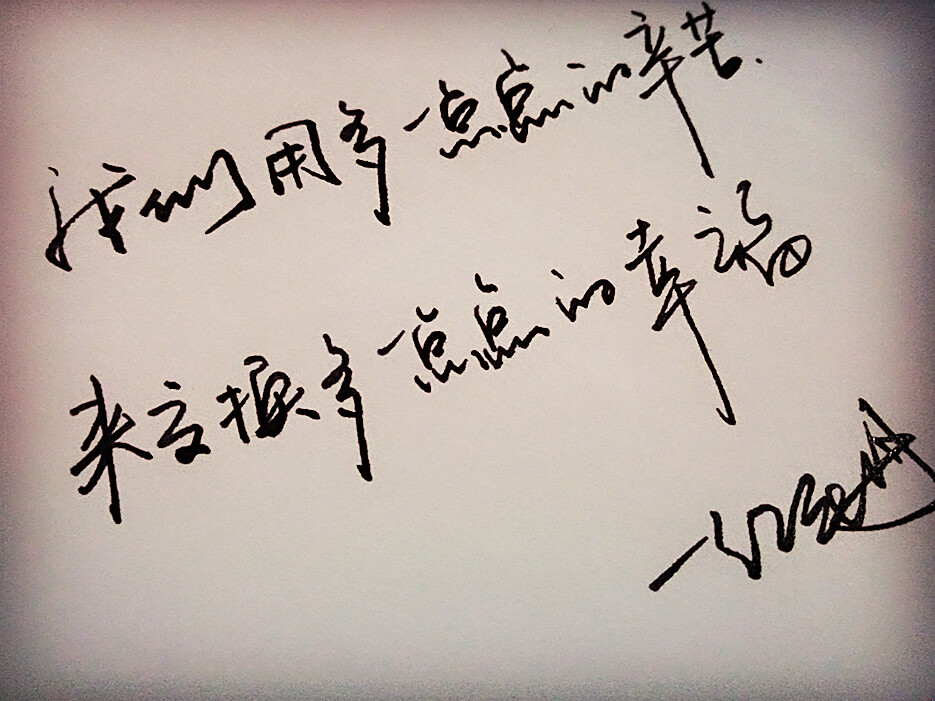 我们用多一点点的辛苦.
来交换多一点点的幸福